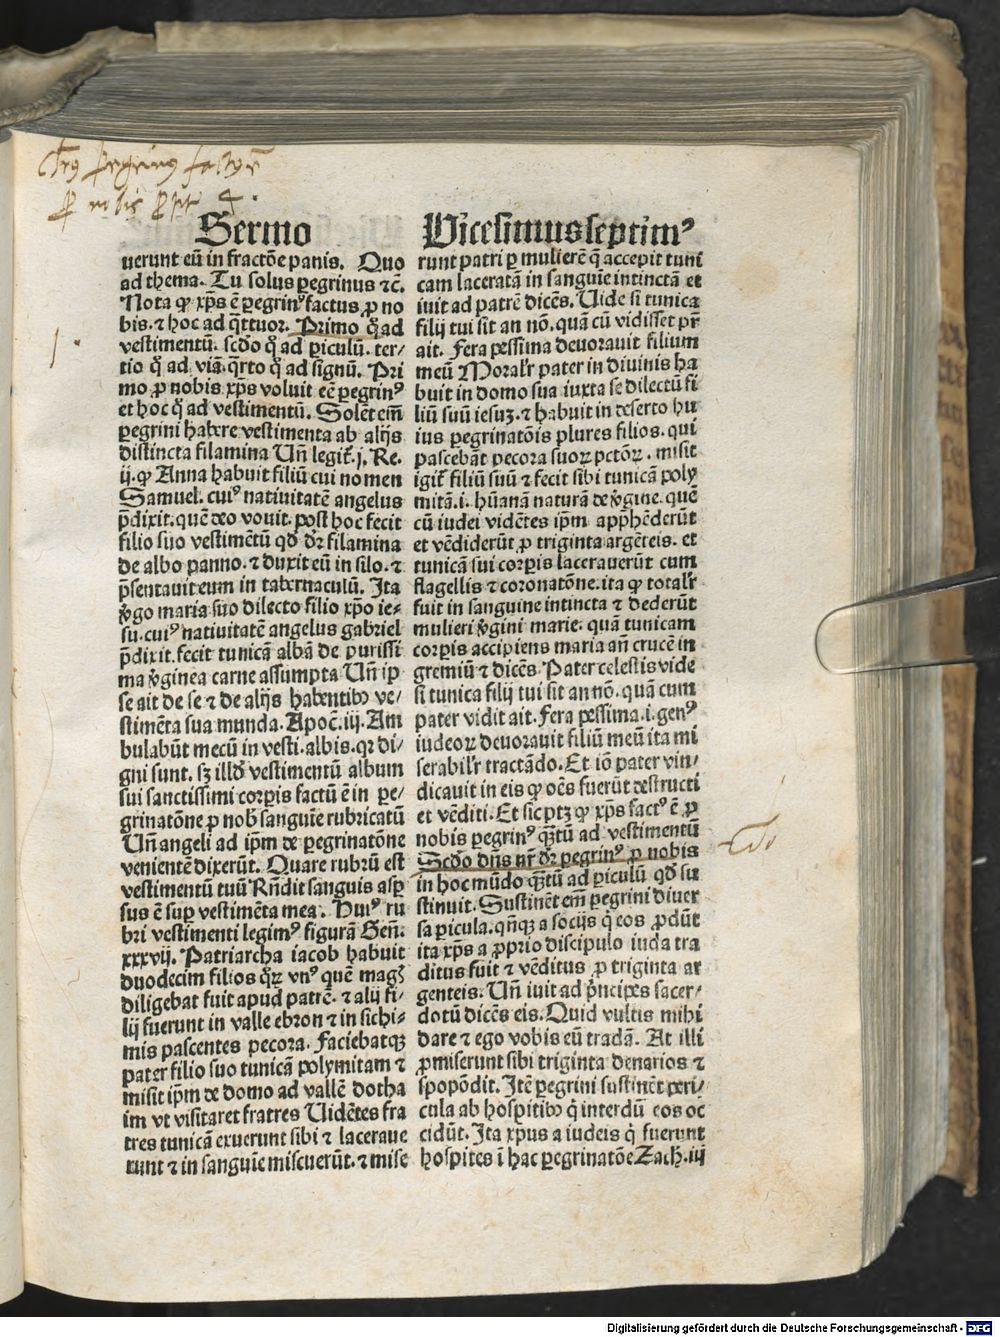 Sermo
uerunt eū in fractōe panis. Quo
ad thema. Tu solus ꝑegrinus ⁊c̄.
Nota ꝙ xp̄s ē ꝑegrinꝰ factus ꝓ no
bis. ⁊ hoc ad q̄ttuor. Primo q̊ ad
vestimentū. scd̓o q̊ ad ꝑiculū. ter/
tio q̊ ad viā. q̄rto q̊ ad signū. Pri
mo ꝓ nobis xp̄s voluit eē ꝑegrinꝰ
et hoc q̊ ad vestimentū. Solēt em̄
ꝑegrini habere vestimenta ab alijs
distincta filamina Un̄ legit᷑. j. Re.
ij. ꝙ Anna habuit filiū cui nomen
Samuel. cuiꝰ natiuitatē angelus
p̄dixit. quē deo vouit. post hoc fecit
filio suo vestimētū qd̓ dr̄ filamina
de albo panno. ⁊ duxit eū in silo. ⁊
p̄sentauit eum in tabernaculū. Ita
v̓go maria suo dilecto filio xp̄o ie⸗
su. cuiꝰ natiuitatē angelus gabriel
p̄dixit. fecit tunicā albā de purissi
ma v̓ginea carne assumpta Un̄ ip
se ait de se ⁊ de alijs habentibꝰ ve/
stimēta sua munda. Apoc̄. iij. Am
bulabūt mecū in vesti. albis. qꝛ di/
gni sunt. sꝫ illd̓ vestimentū album
sui sanctissimi corpis factū ē in pe/
grinatōne ꝓ nob̓ sanguīe rubricatū
Un̄ angeli ad ip̄m de ꝑegrinatōne
venientē dixerūt. Quare rubrū est
vestimentū tuū Rn̄dit sanguis aspꝑ
sus ē suꝑ vestimēta mea. Huiꝰ ru
bri vestimenti legimꝰ figurā Gen̄.
xxxvij. Patriarcha iacob habuit
duodecim filios q̊ꝝ vnꝰ quē magꝭ
diligebat fuit apud patrē. ⁊ alij fi⸗
lij fuerunt in valle ebron ⁊ in sichi⸗
mis pascentes pecora. Faciebatqꝫ
pater filio suo tunicā polymitam ⁊
misit ip̄m de domo ad vallē dotha
im vt visitaret fratres Uidētes fra
tres tunicā exuerunt sibi ⁊ laceraue
runt ⁊ in sanguīe miscuerūt. ⁊ mise
Uicesimusseptimꝰ
runt patri ꝑ mulierē q̄ accepit tuni
cam laceratā in sanguīe intinctā et
iuit ad patrē dicēs. Uide si tunica
filij tui sit an nō. quā cū vidisset pr̄
ait. Fera pessima deuorauit filium
meū Moralr̓ pater in diuinis ha
buit in domo sua iuxta se dilectū fi
liū suū iesuꝫ. ⁊ habuit in deserto hu
ius ꝑegrinatōis plures filios. qui
pascebāt pecora suoꝝ pctōꝝ. misit
igit᷑ filiū suū ⁊ fecit sibi tunicā poly
mitā. i. hūanā naturā de v̓gine. quē
cū iudei vidētes ip̄m app̄hēderūt
et vēdiderūt ꝓ triginta argēteis. et
tunicā sui corpis lacerauerūt cum
flagellis ⁊ coronatōne. ita ꝙ totalr̓
fuit in sanguine intincta ⁊ dederūt
mulieri v̓gini marie. quā tunicam
corpis accipiens maria an̄ crucē in
gremiū ⁊ dicēs. Pater celestis vide
si tunica filij tui sit an nō. quā cum
pater vidit ait. Fera pessima. i. genꝰ
iudeoꝝ deuorauit filiū meū ita mi
serabilr̓ tractādo. Et iō pater vin/
dicauit in eis ꝙ oēs fuerūt destructi
et vēditi. Et sic ptꝫ ꝙ xp̄s factꝰ ē ꝓ
nobis ꝑegrinꝰ qꝫtū ad vestimentū
Scd̓o dn̄s nr̄ dr̄ ꝑegrinꝰ ꝓ nobis
in hoc mūdo qꝫtū ad ꝑiculū qd̓ su
stinuit. Sustinēt em̄ ꝑegrini diuer
sa ꝑicula. qn̄qꝫ a socijs q̇ eos ꝓdūt
ita xp̄s a ꝓprio discipulo iuda tra
ditus fuit ⁊ vēditus ꝓ triginta ar
genteis. Un̄ iuit ad p̄ncipes sacer/
dotū dicēs eis. Quid vultis mihi
dare ⁊ ego vobis eū tradā. At illi
ꝓmiserunt sibi triginta denarios ⁊
spopōdit. Itē ꝑegrini sustinēt peri/
cula ab hospitibꝰ q̇ interdū eos oc
cidūt. Ita xp̄us a iudeis q̇ fuerunt
hospites ī hac ꝑegrinatōe Zach. iij
Digitalisierung gefördert durch die Deutsche Forschungsgemeinschaft - DFG